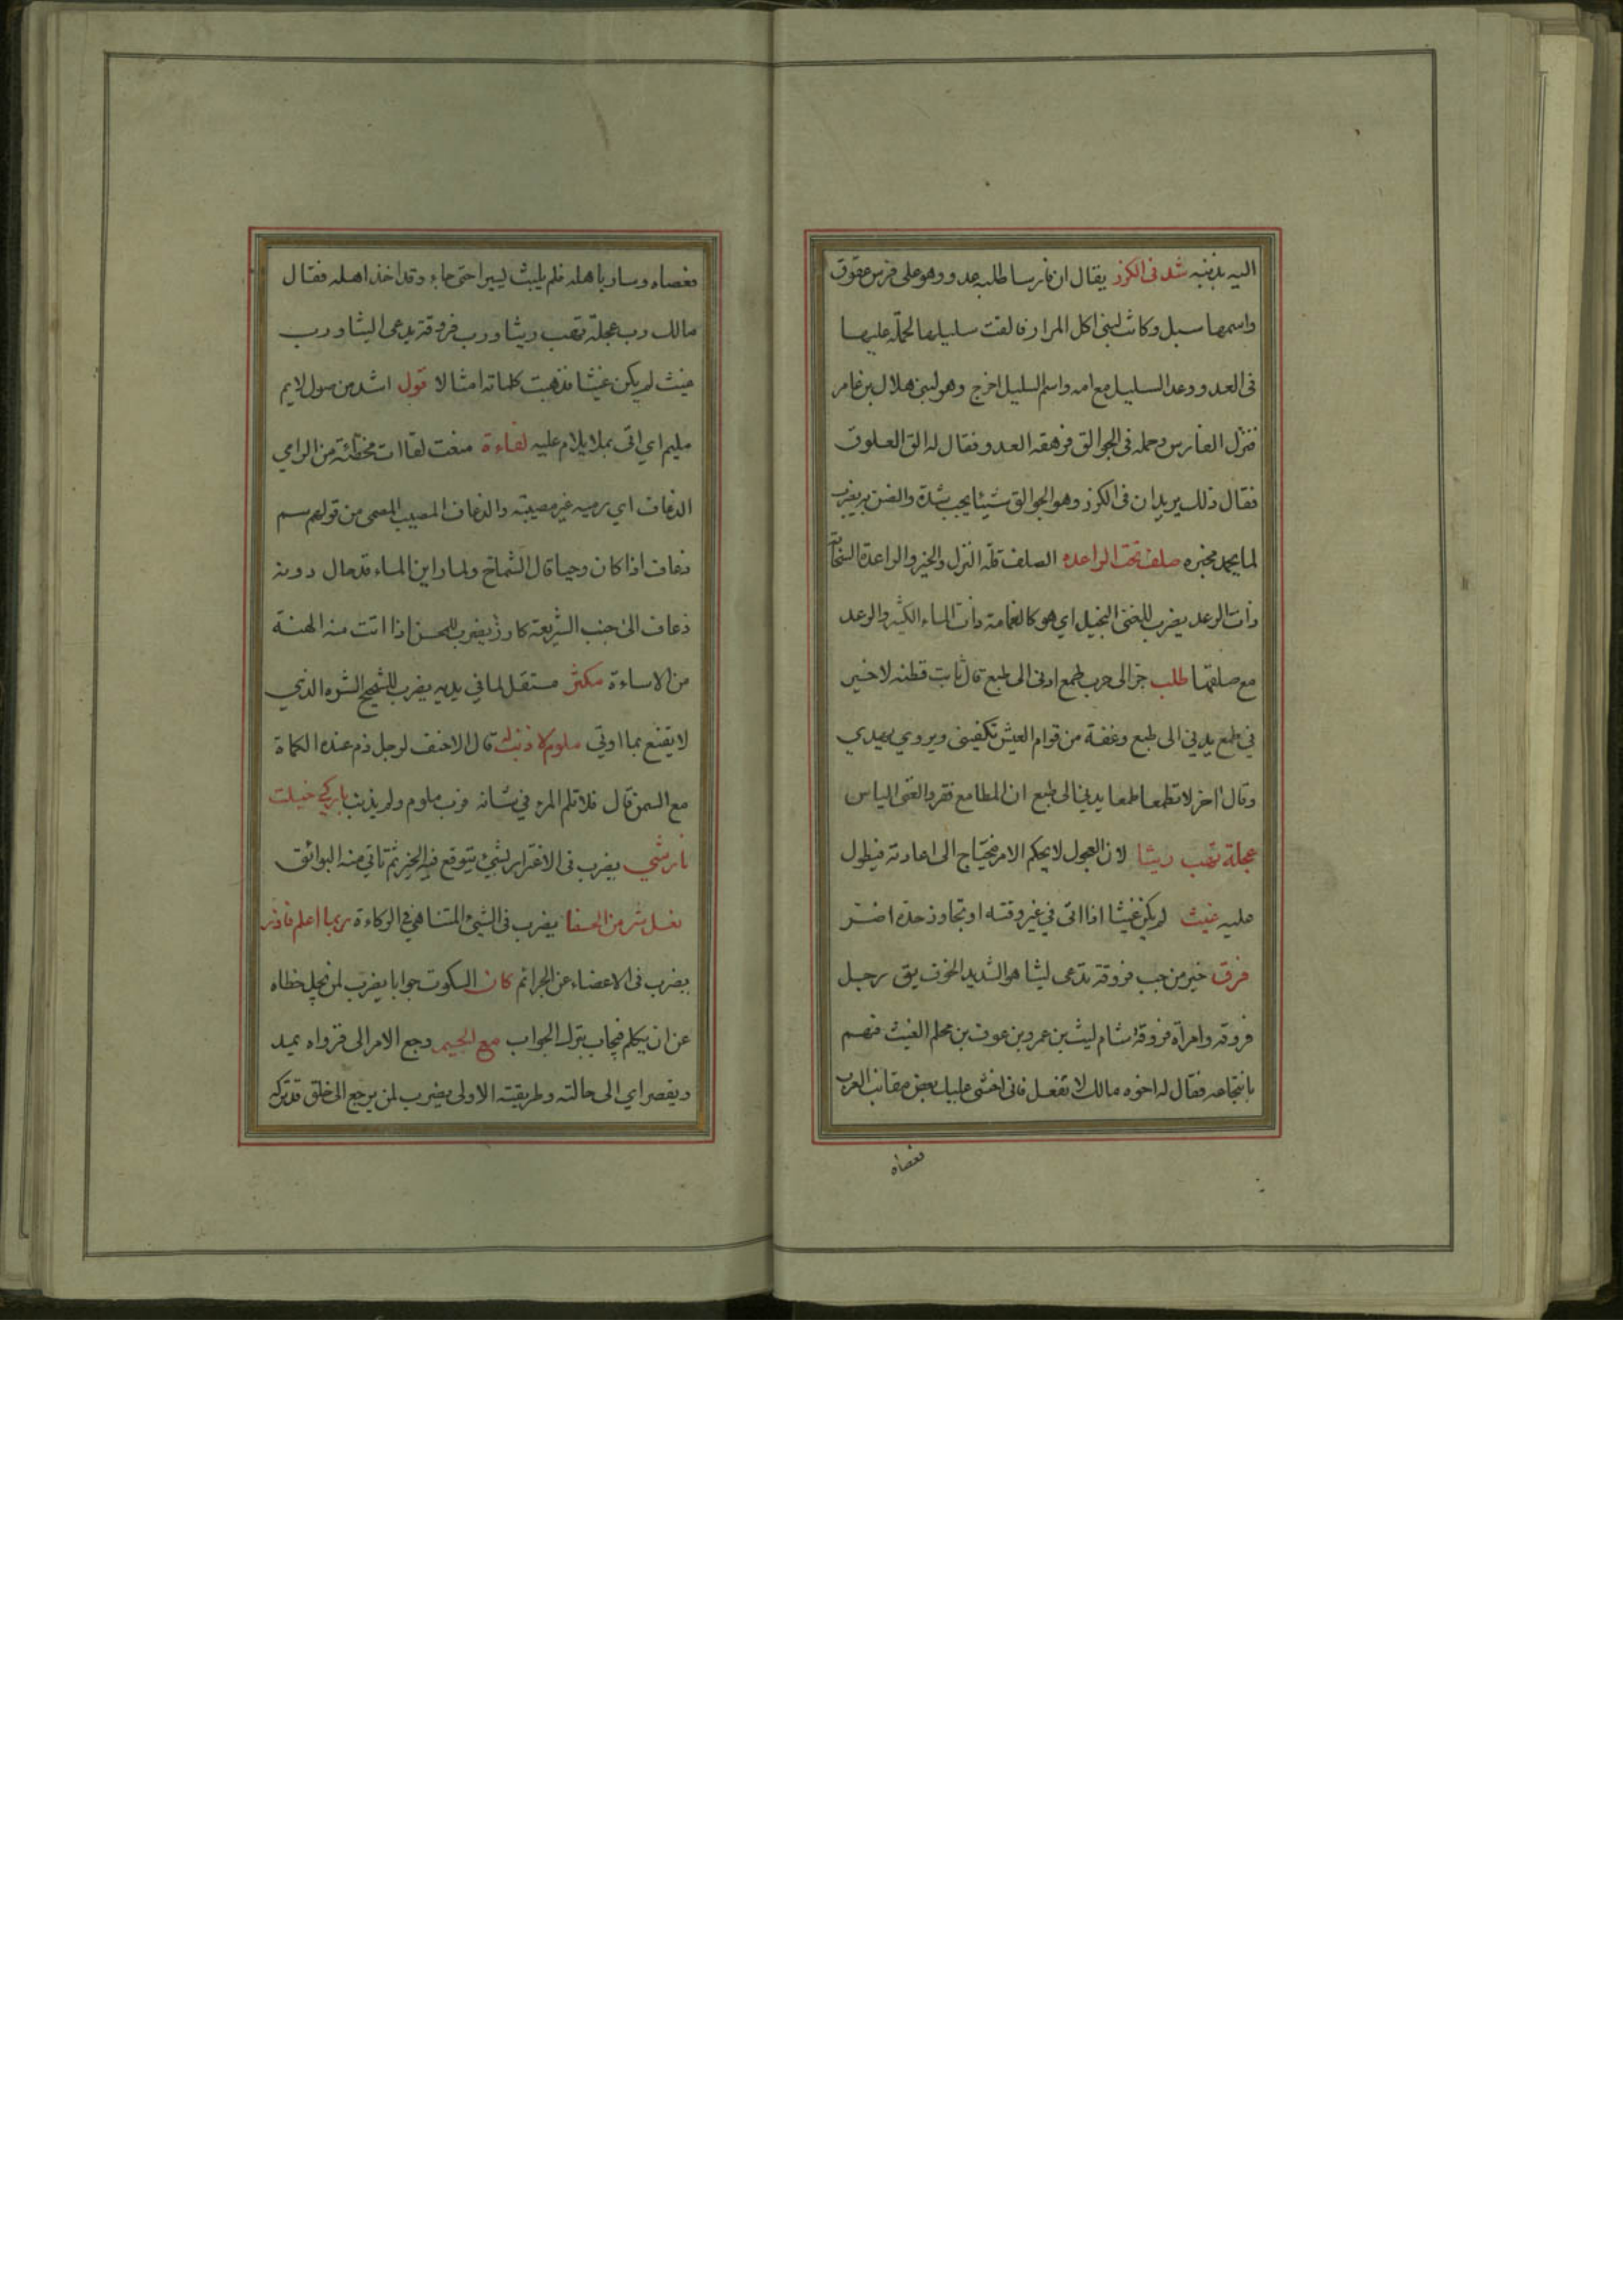 اليه بذنبه شد فى الكرز يقال ان فارسا طلبه عدو وهو على فرس عقوق
واسمها سبل وكانت لبنى اكل المرار فالقت سليلها لحملّه عليها
فى العدو وعدا السليل مع امه واسم السليل اخرج وهو لبنى هلال بن عامر
فنزل الفارس وحمله فى الجوالق فرهقه العدو فقال له الق الفلوق
فقال ذلك يريد ان فى الكرز وهو الجوالق شيئا يجب شدة والضن به يضرب
لما يحمد مخبره صلف تحت الراعدة الصلف قلة النزل والخير والراعدة السحابة
ذات الرعد يضرب للغنى البخيل اى هو كالغمامة ذات الماء الكثير والرعد
مع صلفها طلب جر الى حرب طمع ادنى الى طبع قال ثابت قطنه لا خير
في طمع يدني الى طبع وغفة من قوام العيش تكفينى ويروي يهدي
وقال اخر لا تطمعا طمعا يدنى الى طبع ان المطامع فقر والغنى الياس
عجلة تهب ريثا لان العجول لا يحكم الامر فيحتاج الى اعادته فيطول
عليه غيث لم يكن غيثا اذا اتى في غير وقته او تجاوز حده اضر
فرق خير من حب فروقة تدعى ليثا هو الشديد الخوف يق رجل
فروقه وامرأة فروقة شام ليث بن عمرو بن عوف بن محلم الغيث فهم
بانتجاعه فقال له اخوه مالك لا تفعل فانى اخشى عليك بعض مقانب العرب
فعصاه
فعصاه وسار باهله فلم يلبث يسيرا حتى جاء وقد اخذ اهله فقال
مالك رب عجلة تهب ريثا ورب فروقة يدعى اليثا ورب
غيث لم يكن غيثا فذهبت كلماته امثالا قول اشد من صول لايم
مليم اي اتى بما لا يلام عليه لفاءة منعت لقاات مخطئة من الرامي
الذعاف اي رميه غير مصيبته والذعاف المصيب المصمى من قولهم سم
ذعاف اذا كان وحيا قال الشماخ ولما راين الماء قد حال دونه
ذعاف الى جنب الشريعة كارز يضرب للمحسن اذا اتت منه الهنة
من الاساءة مكثر مستقل لما في يديه يضرب للشحيح الشره الذي
لا يقنع بما اوتي ملوم لا ذنب له قال الاحنف لرجل ذم عنده الكماة
مع السمن قال فلا تلم المرء في شانه فرب ملوم ولم يذنب بارك خيلت
نار شي يضرب فى الاغترار بشيئ يتوقع فيه الخير ثم تاتي منه البوائق
نعل شر من الحفا يضرب فى الشيئ المتناهي في الركاءة ربما اعلم فاذر
يضرب فى الاغضاء عن الجرائم كان السكوت جوابا يضرب لمن يجل خطاه
عن ان يكلم فيجاب بترك الجواب مع الجيم رجع الامر الى قرواه يمد
ويقصر اي الى حالته وطريقته الاولى يضرب لمن يرجع الى خلق قد تركه